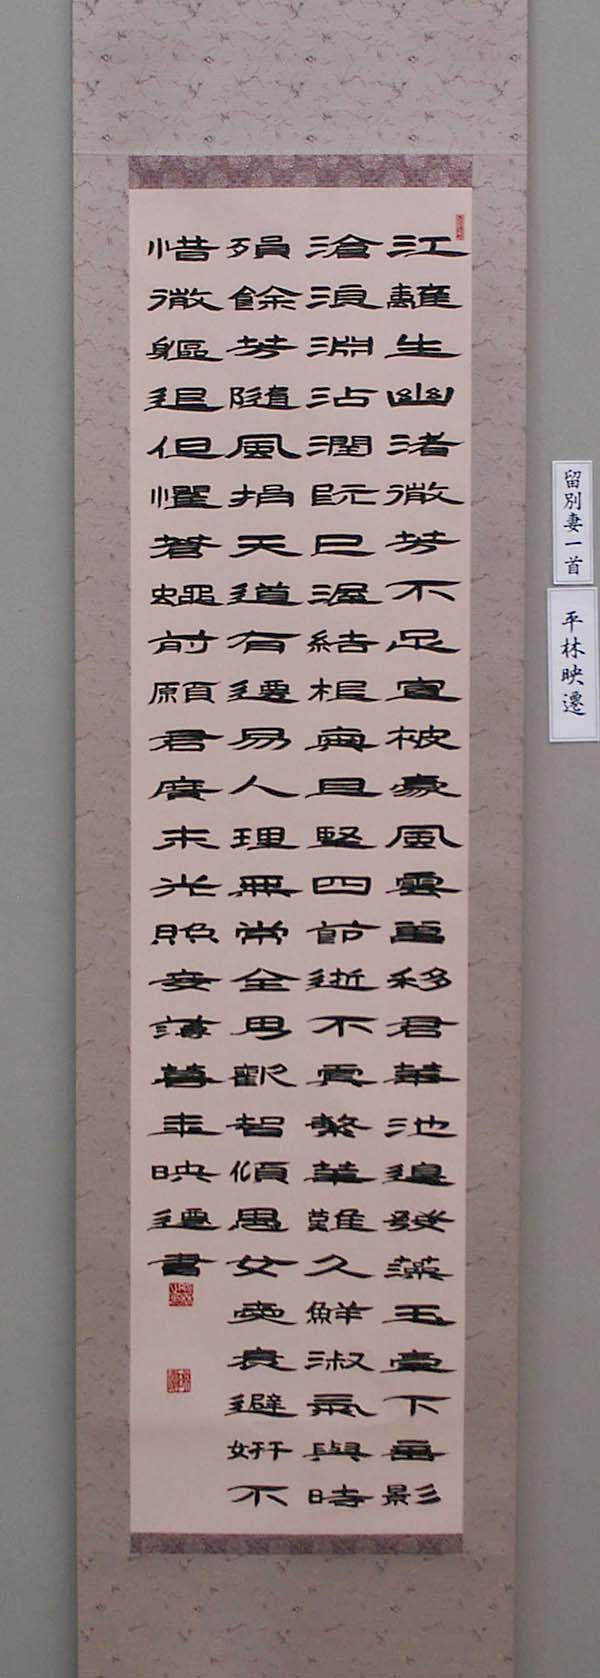 江離生幽渚微芳不足宣被蒙風雲會移君華池邊發藻玉臺下垂影
滄浪淵沾潤既已渥結根奧且堅四節逝不處繁華難久鮮淑氣與時
殞餘芳隨風捐天道有遷易人理無常全男歡智傾愚女愛衰避妍不
惜微軀退但懼蒼蠅前願君廣末光照妾薄暮年映遷書
留別妻一首
平林映遷